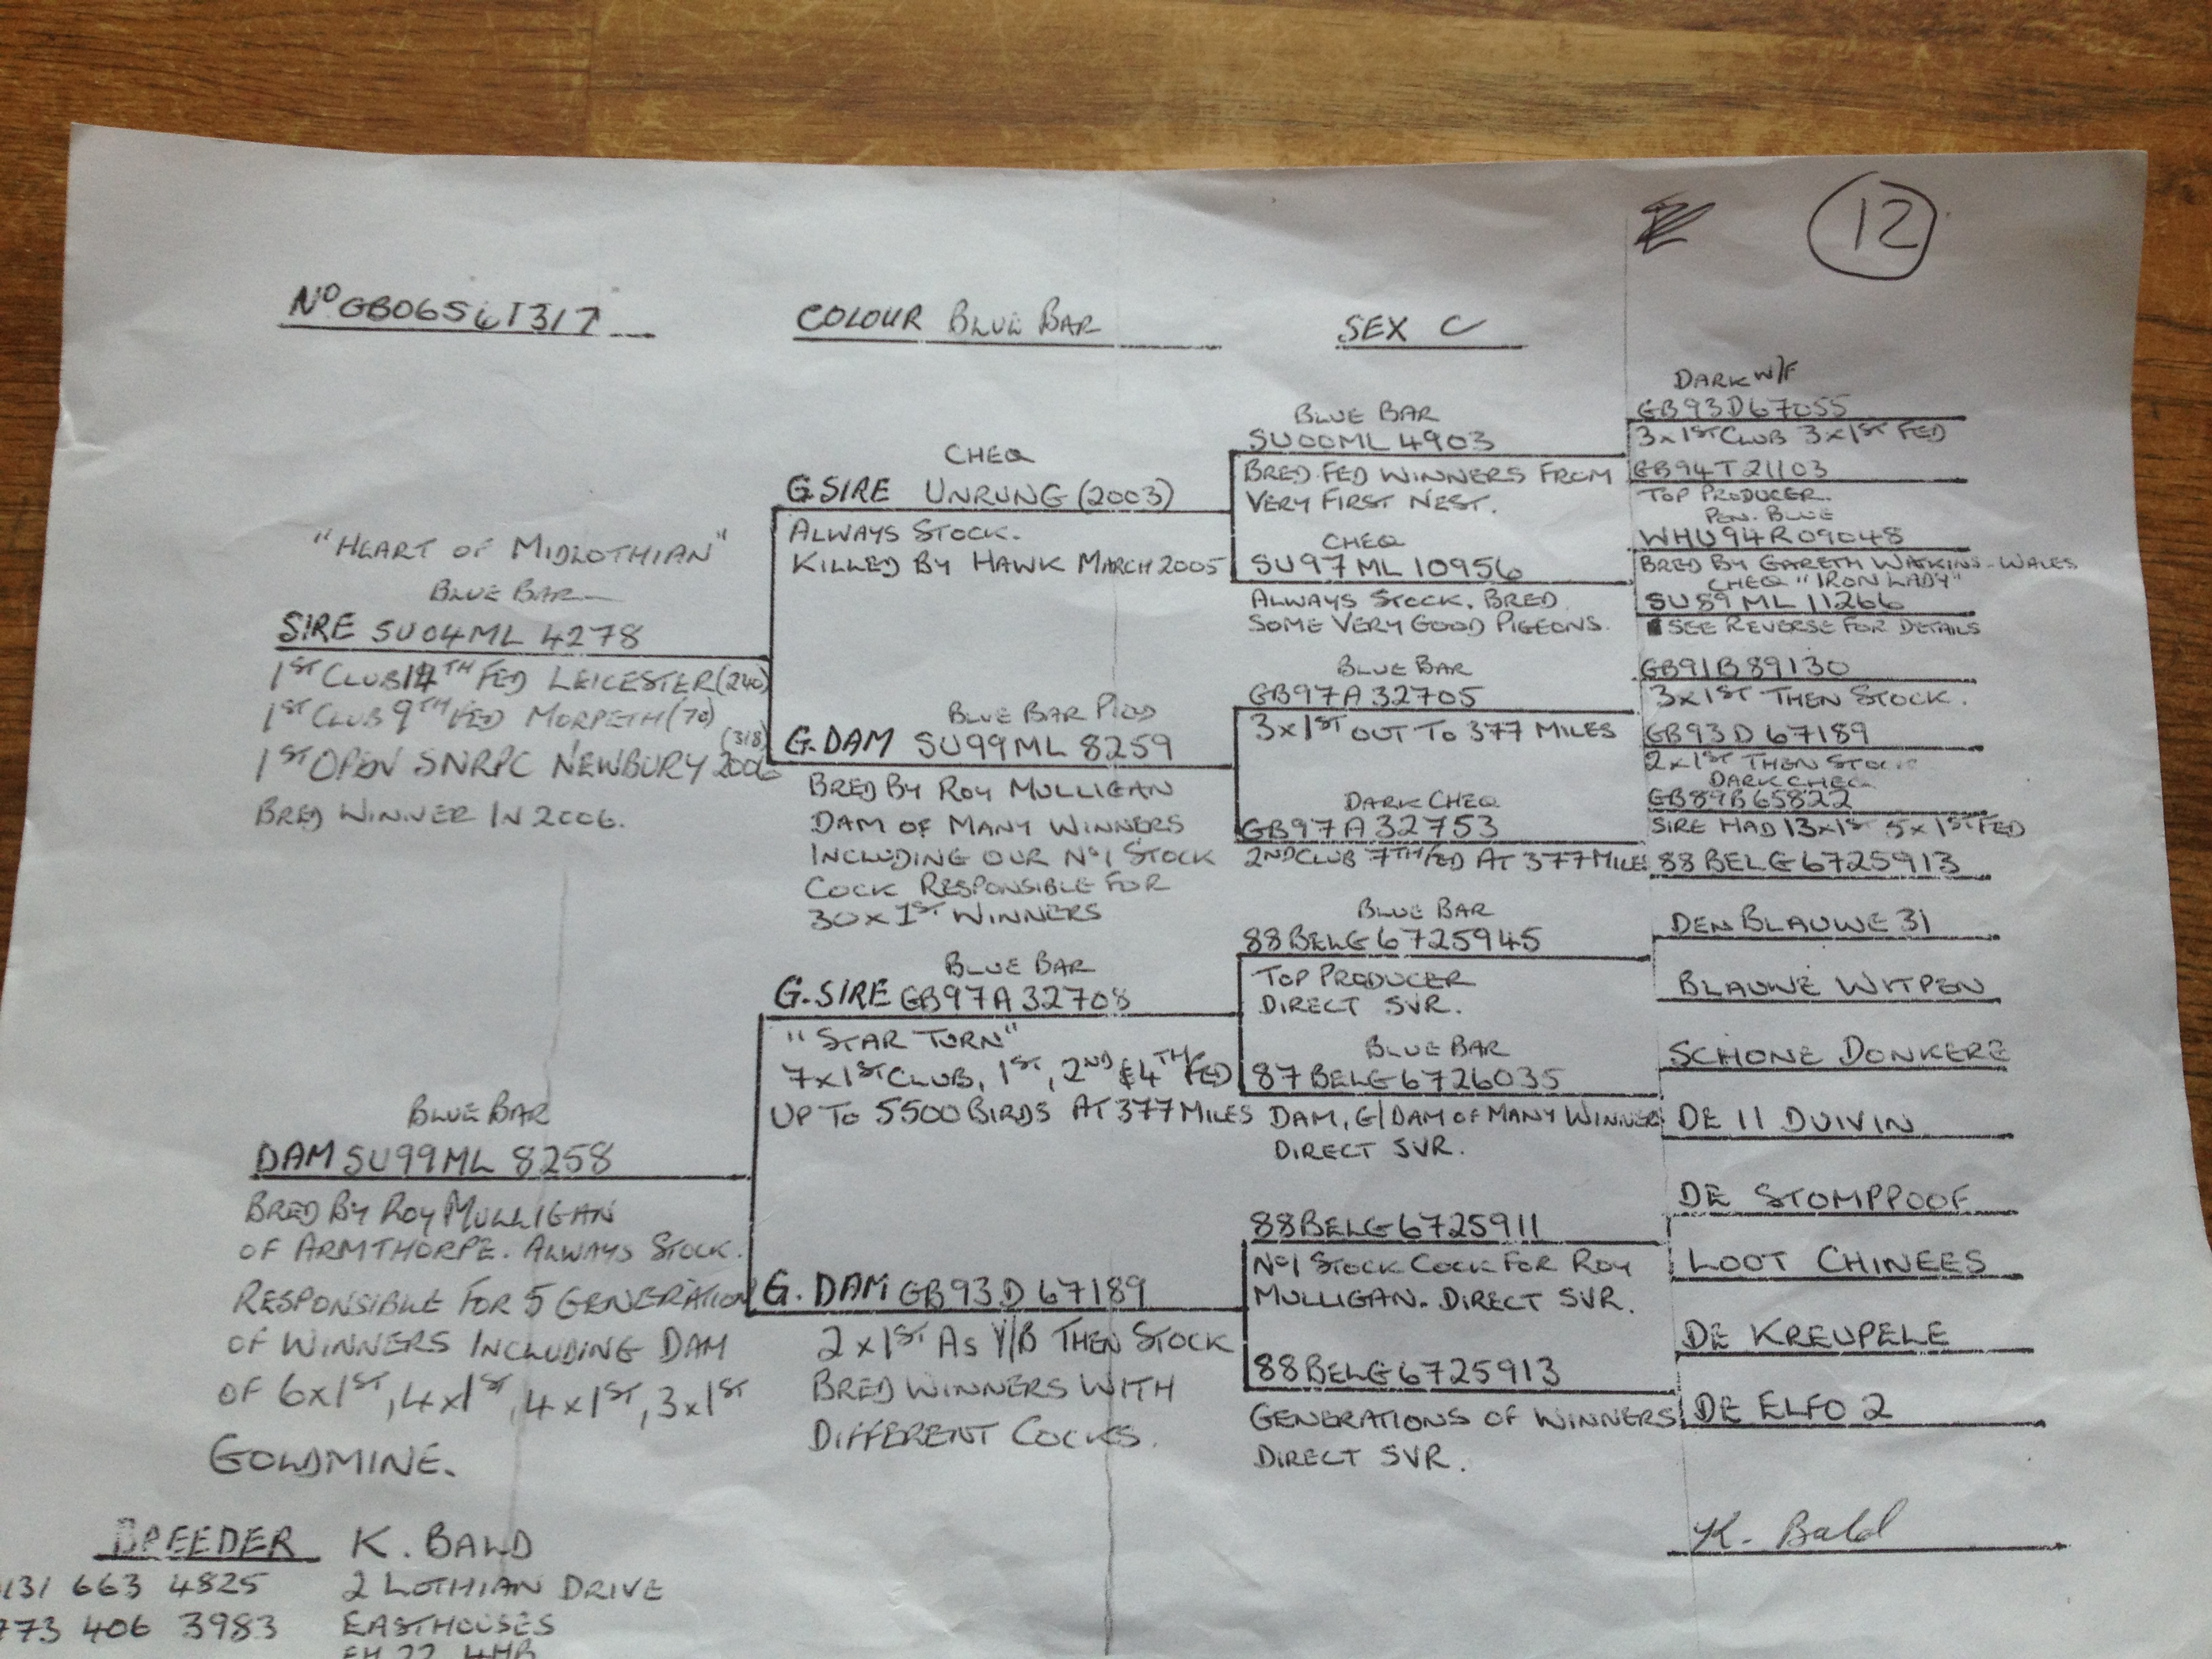 12
Nº GB06S61317
COLOUR BLUE BAR
SEX C
"HEART OF MIDLOTHIAN"
BLUE BAR
SIRE SU04ML 4278
1ST CLUB 14TH FED LEICESTER (240)
1ST CLUB 9TH FED MORPETH (70)
(318)
1ST OPEN SNRPC NEWBURY 2006
BRED WINNER IN 2006.
BLUE BAR
DAM SU99ML 8258
BRED BY ROY MULLIGAN
OF ARMTHORPE. ALWAYS STOCK.
RESPONSIBLE FOR 5 GENERATION
OF WINNERS INCLUDING DAM
OF 6x1ST, 4x1ST, 4x1ST, 3x1ST
GOLDMINE.
CHEQ
G.SIRE UNRUNG (2003)
ALWAYS STOCK.
KILLED BY HAWK MARCH 2005
BLUE BAR PIED
G.DAM SU99ML 8259
BRED BY ROY MULLIGAN
DAM OF MANY WINNERS
INCLUDING OUR Nº1 STOCK
COCK RESPONSIBLE FOR
30x1ST WINNERS
BLUE BAR
G.SIRE GB97A32708
"STAR TURN"
7x1ST CLUB, 1ST, 2ND & 4TH FED
UP TO 5500 BIRDS AT 377 MILES
G. DAM GB93D 67189
2x1ST AS Y/B THEN STOCK
BRED WINNERS WITH
DIFFERENT COCKS.
BLUE BAR
SU00ML 4903
BRED FED WINNERS FROM
VERY FIRST NEST.
CHEQ
SU97ML 10956
ALWAYS STOCK. BRED
SOME VERY GOOD PIGEONS.
BLUE BAR
GB97A32705
3x1ST OUT TO 377 MILES
DARK CHEQ
GB97A32753
2ND CLUB 7TH FED AT 377 MILE
BLUE BAR
88BELG6725945
TOP PRODUCER
DIRECT SVR.
BLUE BAR
87BELG6726035
DAM, G/DAM OF MANY WINNER
DIRECT SVR.
88BELG6725911
Nº1 STOCK COCK FOR ROY
MULLIGAN. DIRECT SVR.
88BELG6725913
GENERATIONS OF WINNERS
DIRECT SVR.
DARK W/F
GB93D67055
3x1ST CLUB 3x1ST FED
GB94T21103
TOP PRODUCER.
PEN. BLUE
WHU94R09048
BRED BY GARETH WATKINS - WALES
CHEQ "IRON LADY"
SU89ML 11266
SEE REVERSE FOR DETAILS
GB91B89130
3x1ST THEN STOCK.
GB93D 67189
2x1ST THEN STOCK
DARK CHEQ
GB89B65822
SIRE HAD 13x1ST 5x1ST FED
88BELG6725913
DEN BLAUWE 31
BLAUWE WITPEN
SCHONE DONKERE
DE 11 DUIVIN
DE STOMPPOOF
LOOT CHINEES
DE KREUPELE
DE ELFO 2
K. Bald
BREEDER K. BALD
131 663 4825 2 LOTHIAN DRIVE
773 406 3983 EASTHOUSES
EH 22 4HB